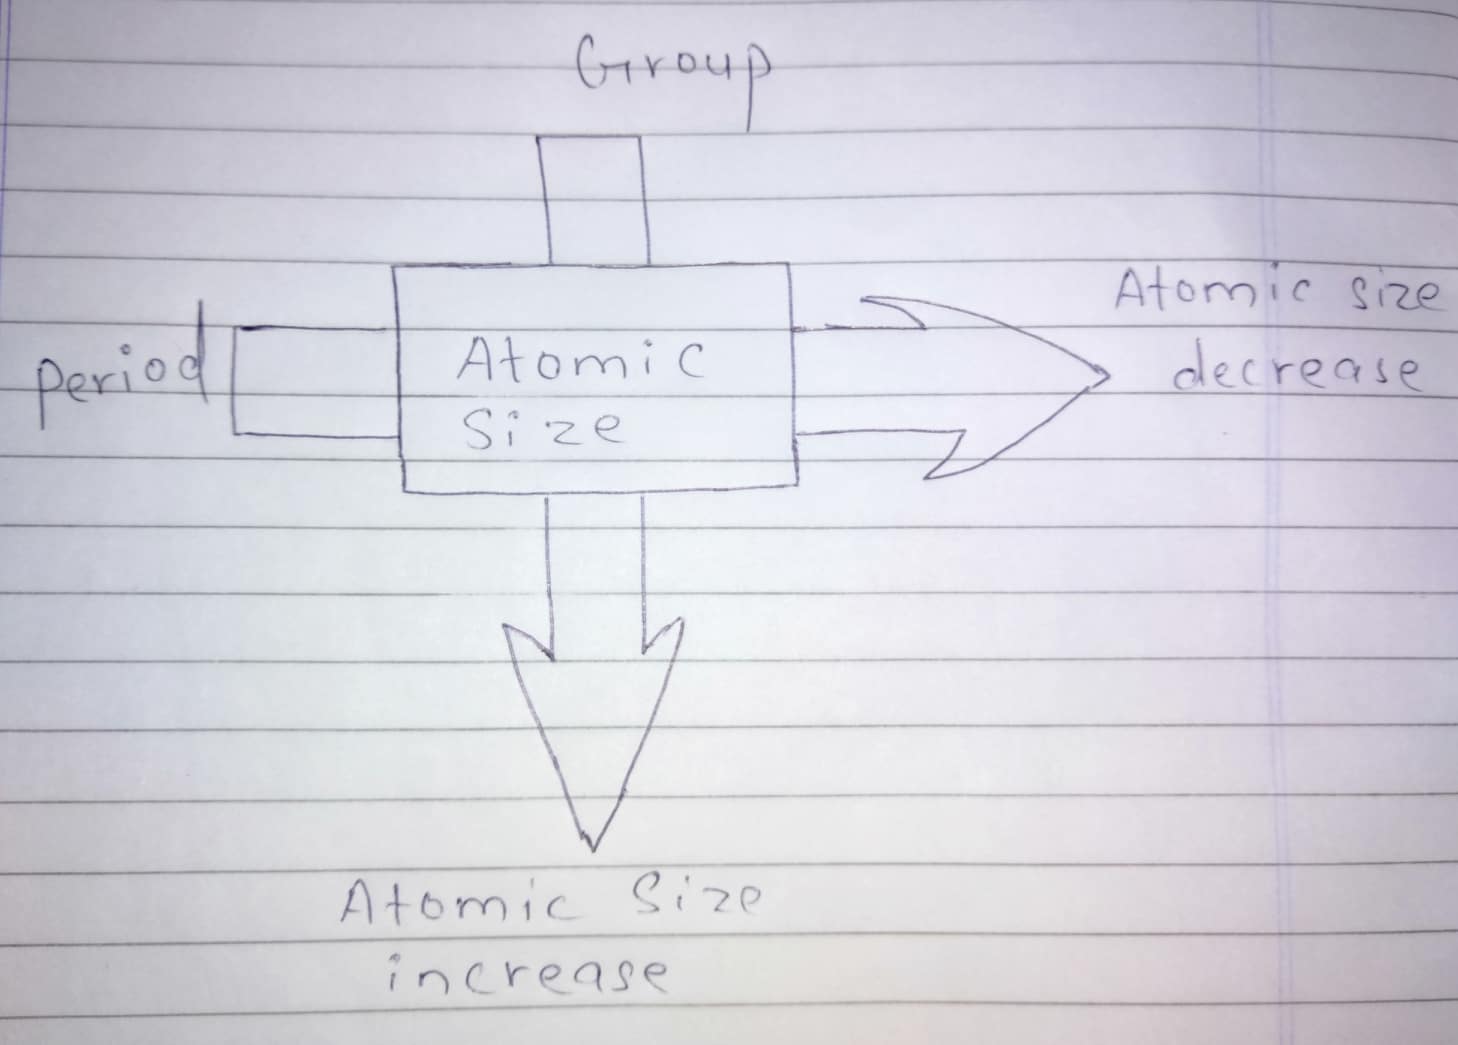 Group
Period
Atomic
Size
Atomic size
decrease
Atomic Size
increase